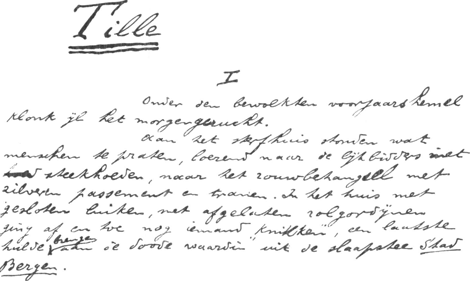 Tille
I
Onder den bewolkten voorjaarshemel
klonk ijl het morgengerucht.
Aan het sterfhuis stonden wat
menschen te praten, loerend naar de lijkbidders met
steekhoeden, naar het rouwbehangsel met
zilveren passement en tranen. In het huis met
gesloten luiken, net afgelaten rolgordijnen
ging af en toe nog iemand knikken", een laatste
hulde brengen aan de doode waardin" uit de slaapstee Stad
Bergen.